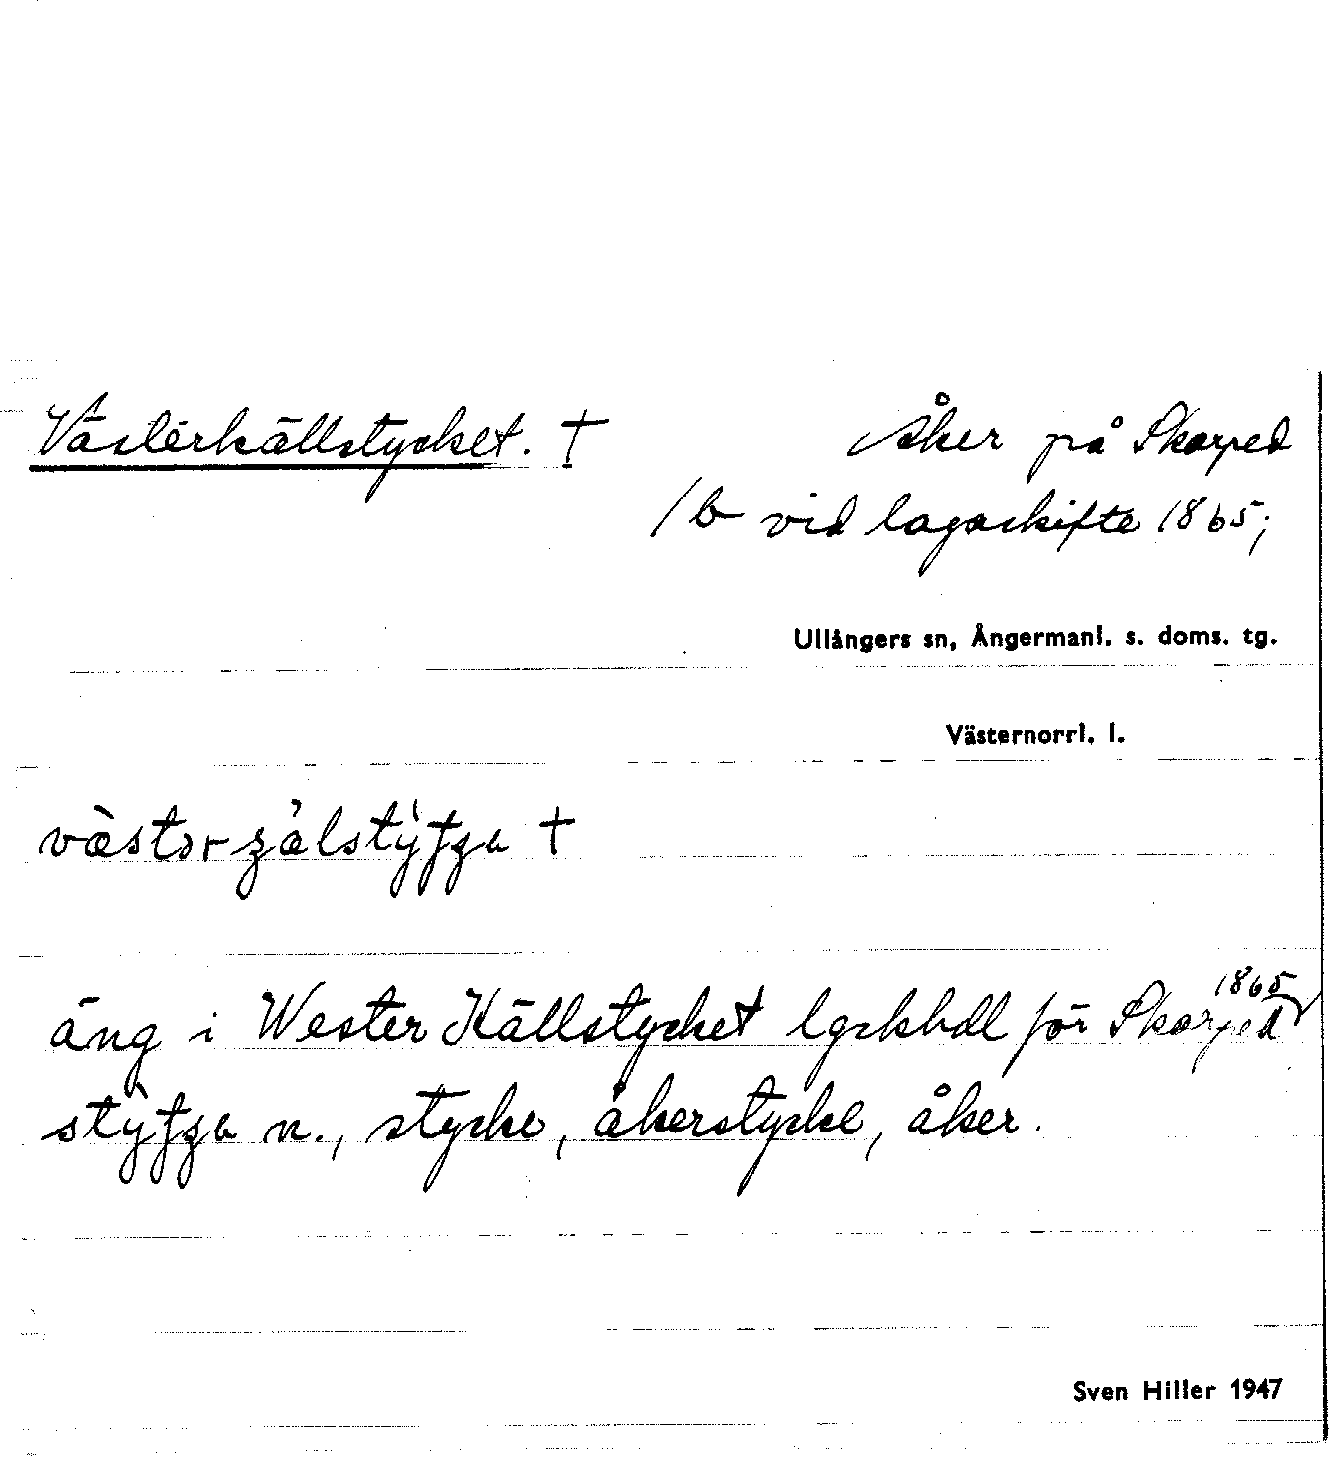 Västerkällstycket. †
Åker på Skarped
1b vid lagaskifte 1865;
Ullångers sn, Ångermanl. s. doms. tg.
Västernorrl. l.
†
1865
äng i Wester Källstycket lgskhdl för Skarped
n., stycke, åkerstycke, åker.
Sven Hiller 1947